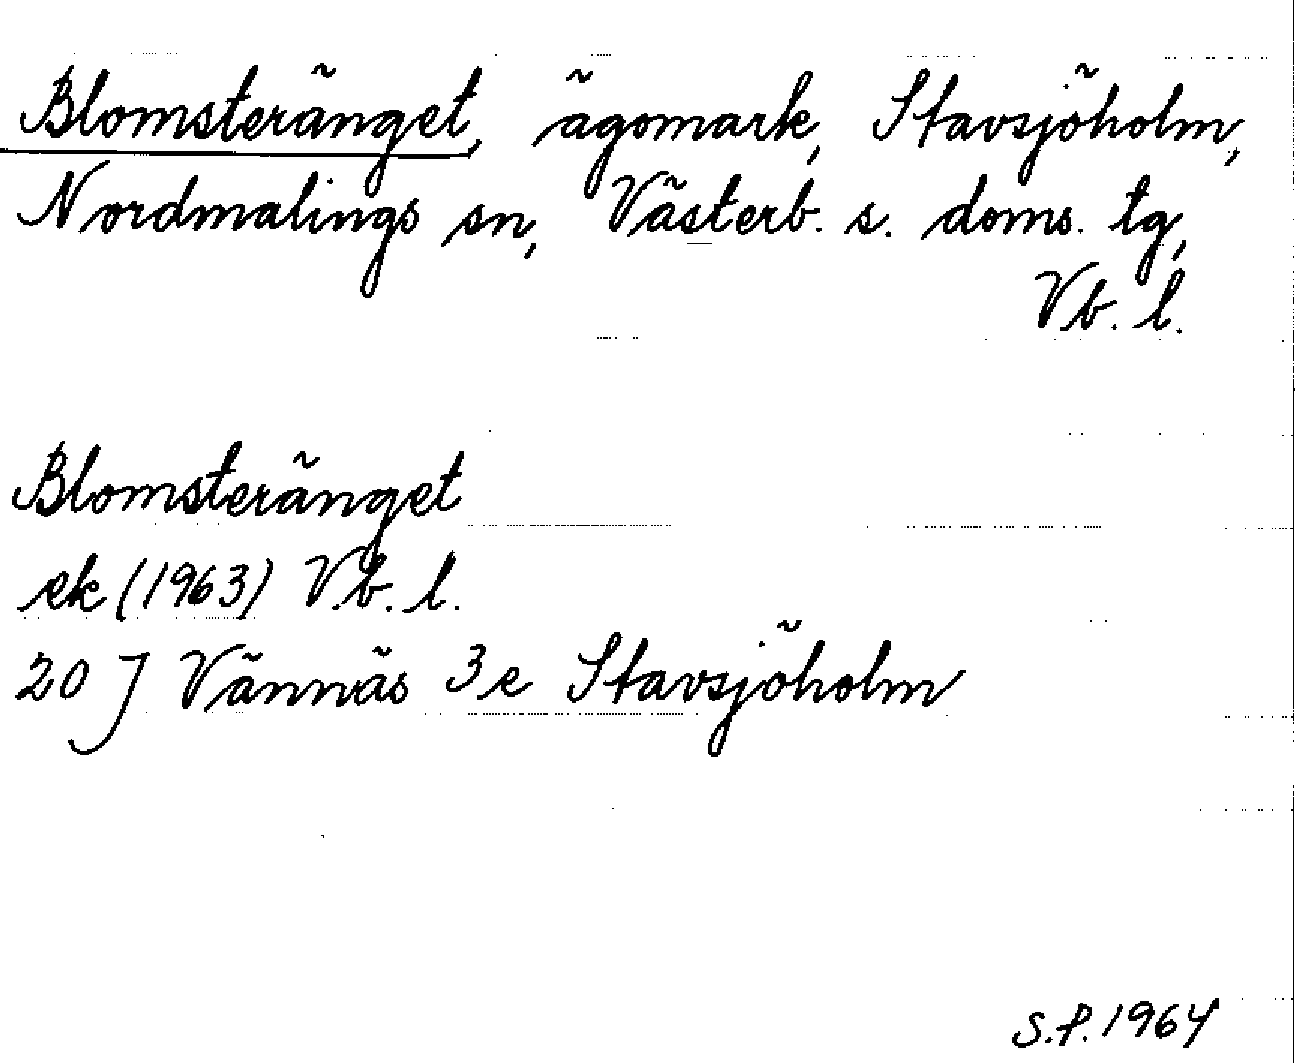 Blomsteränget, ägomark, Stavsjöholm,
Nordmalings sn, Västerb. s. doms. tg,
Vb. l.
Blomsteränget
ek (1963) Vb. l.
20 J Vännäs 3e Stavsjöholm
S.P. 1964